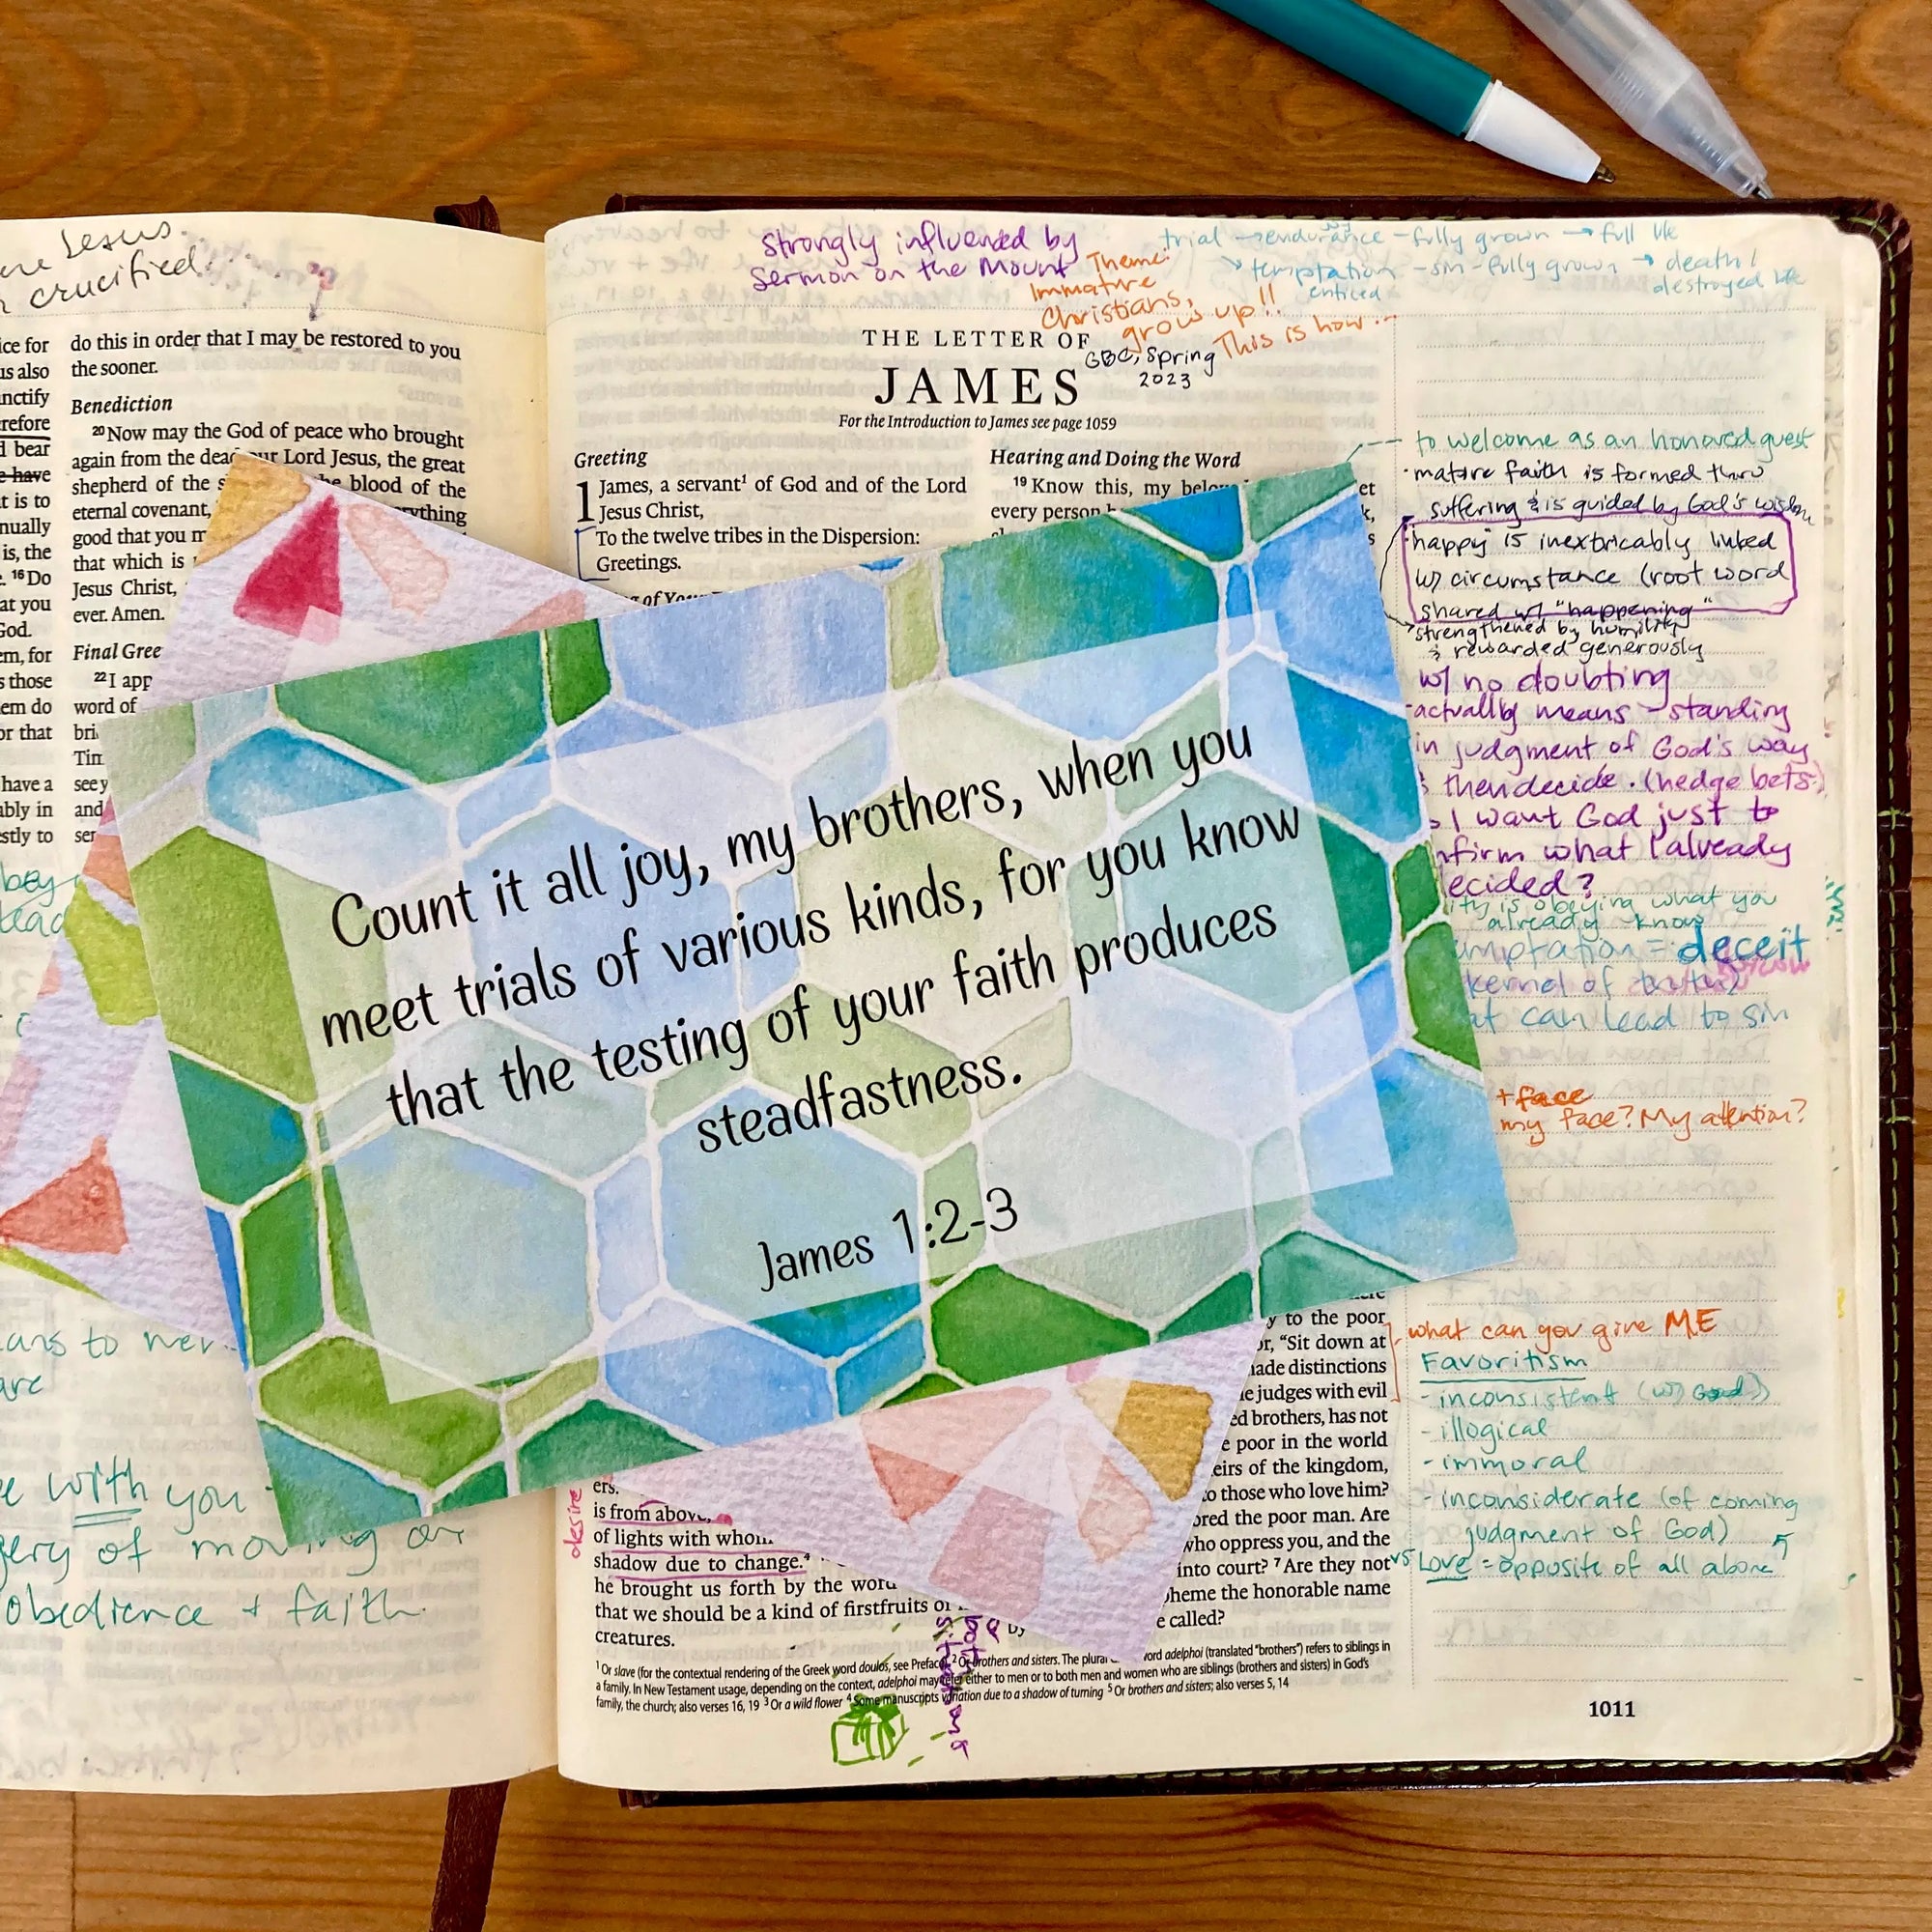 ere Jesus
crucified.
ice for
us also
anctify
refore
d bear
e have
t is to
nually
is, the
. ¹⁶Do
at you
God.
em, for
s those
em do
or that
have a
ably in
stly to
do this in order that I may be restored to you
the sooner.
Benediction
²⁰Now may the God of peace who brought
again from the dead our Lord Jesus, the great
shepherd of the s he blood of the
eternal covenant, rything
good that you m
that which is
Jesus Christ,
ever. Amen.
Final Gree
²²I app
word of
bri
Tim
see y
and
ser
obey
lead
ans to
are
with you
of moving
obedience + faith
Strongly influenced by
Sermon on the Mount
Theme:
Immature
Christians,
grow up!!
This is how...
trial → endurance - fully grown → full life
temptation - sin - fully grown → death/
enticed destroyed life
GBC, Spring
2023
THE LETTER OF
JAMES
For the Introduction to James see page 1059
Greeting
1 James, a servant¹ of God and of the Lord
Jesus Christ,
To the twelve tribes in the Dispersion:
Greetings.
of You
Hearing and Doing the Word
¹⁹Know this, my belov et
every person
Count it all joy, my brothers, when you
meet trials of various kinds, for you know
that the testing of your faith produces
steadfastness.
James 1:2-3
to welcome as an honored guest
· mature faith is formed thru
suffering & is guided by God's wisdom
"happy" is inextricably linked
w/ circumstance (root word
shared w/ "happening"
strengthened by humility
& rewarded generously
w/ no doubting
actually means - standing
in judgment of God's way
& then decide. (hedge bets)
I want God just to
nfirm what I already
ecided?
ity is obeying what you
already know
mptation = deceit
kernel of truth)
at can lead to sin
+ face
my face? My attention?
what can you give ME
Favoritism
- inconsistent (w/ God)
- illogical
- immoral
- inconsiderate (of coming
judgment of God)
vs Love = opposite of all above
desire
ers.
is from above,
of lights with whom
shadow due to change.⁴
he brought us forth by the word
that we should be a kind of firstfruits of
creatures.
y to the poor
or, "Sit down at
ade distinctions
e judges with evil
ed brothers, has not
e poor in the world
eirs of the kingdom,
to those who love him?
ored the poor man. Are
who oppress you, and the
into court? ⁷Are they not
heme the honorable name
e called?
¹ Or slave (for the contextual rendering of the Greek word doulos, see Preface) ² Or brothers and sisters. The plural word adelphoi (translated "brothers") refers to siblings in
a family. In New Testament usage, depending on the context, adelphoi may refer either to men or to both men and women who are siblings (brothers and sisters) in God's
family, the church; also verses 16, 19 ³ Or a wild flower ⁴ Some manuscripts variation due to a shadow of turning ⁵ Or brothers and sisters; also verses 5, 14
1011